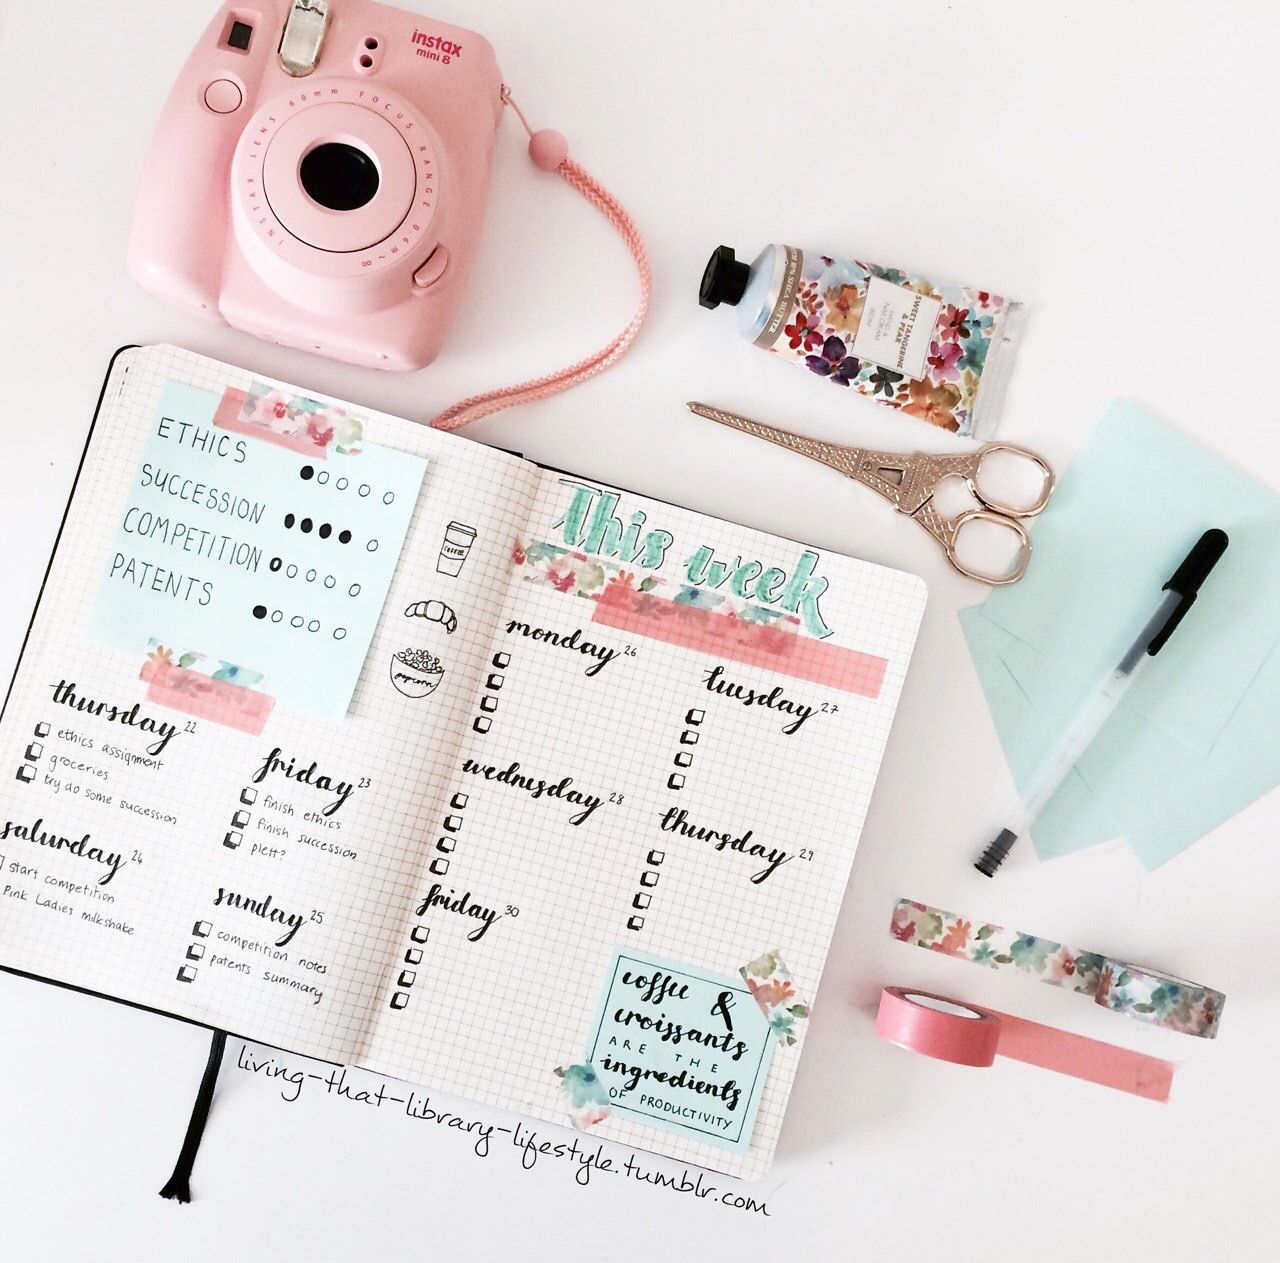 instax
mini 8
INSTAX LENS 60mm FOCUS RANGE 0.6m~∞
10% SHEA BUTTER
SWEET TANGERINE
& PEAR
HAND &
NAIL CREAM
60ml
ETHICS
SUCCESSION
COMPETITION
PATENTS
COFFEE
popcorn
thursday 22
ethics assignment
groceries
try do some succession
friday 23
finish ethics
finish succession
plett?
saturday 24
start competition
Pink Ladies milkshake
sunday 25
competition notes
patents summary
This week
monday 26
tuesday 27
wednesday 28
thursday 29
friday 30
coffee &
croissants
ARE THE
ingredients
OF PRODUCTIVITY
living-that-library-lifestyle.tumblr.com